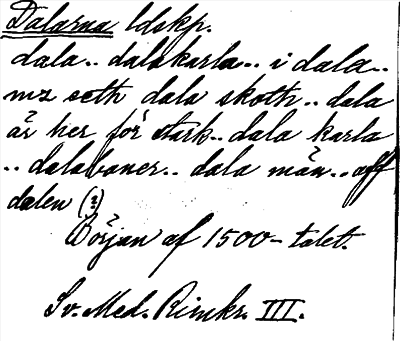 Dalarna ldskp.
dala.. dala karla.. i dala..
mz eeth dala skoth.. dala
är her för stark.. dala karla
.. dalaboner.. dala män.. aff
dalen (?)
Början af 1500-talet.
Sv. Med. Rimkr. III.